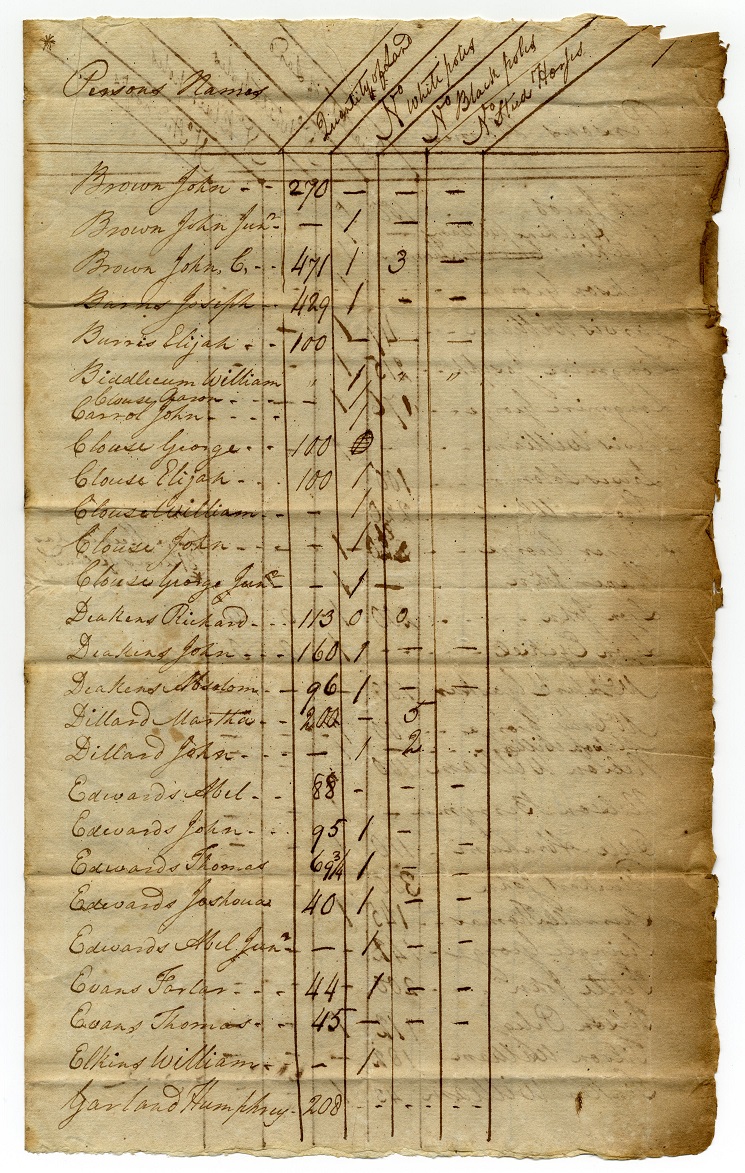 Persons Names Quantity of Land No White poles No Black poles No Stud Horses
Brown John - - 270 — — —
Brown John Junr - — 1 — —
Brown John C. - - 471 1 3 —
Burns Joseph - - 429 1 - —
Burris Elijah - - 100 — — —
Biddlecum William " 1 " "
Clouse Aaron - - - - —
Carrol John - - - - 1
Clouse George - - 100
Clouse Elijah - - 100 1
Clouse William - - - 1
Clouse John - - - -
Clouse George Junr - 1 —
Deakens Richard - - - 113 0 0
Deakens John - - - 160 1 - —
Deakens Abselom - 96 1 —
Dillard Martha - - 200 - 5
Dillard John - - — 1 2
Edwards Abel - - 88 - - —
Edwards John - - - 95 1 —
Edwards Thomas 69 3/4 1 —
Edwards Joshua 40 1 1 —
Edwards Abel Junr — 1 - —
Evans Farlar - - - 44 1 — —
Evans Thomas - - 45 — — —
Elkins William - - - 1
Garland Humphrey - 208 - - - -